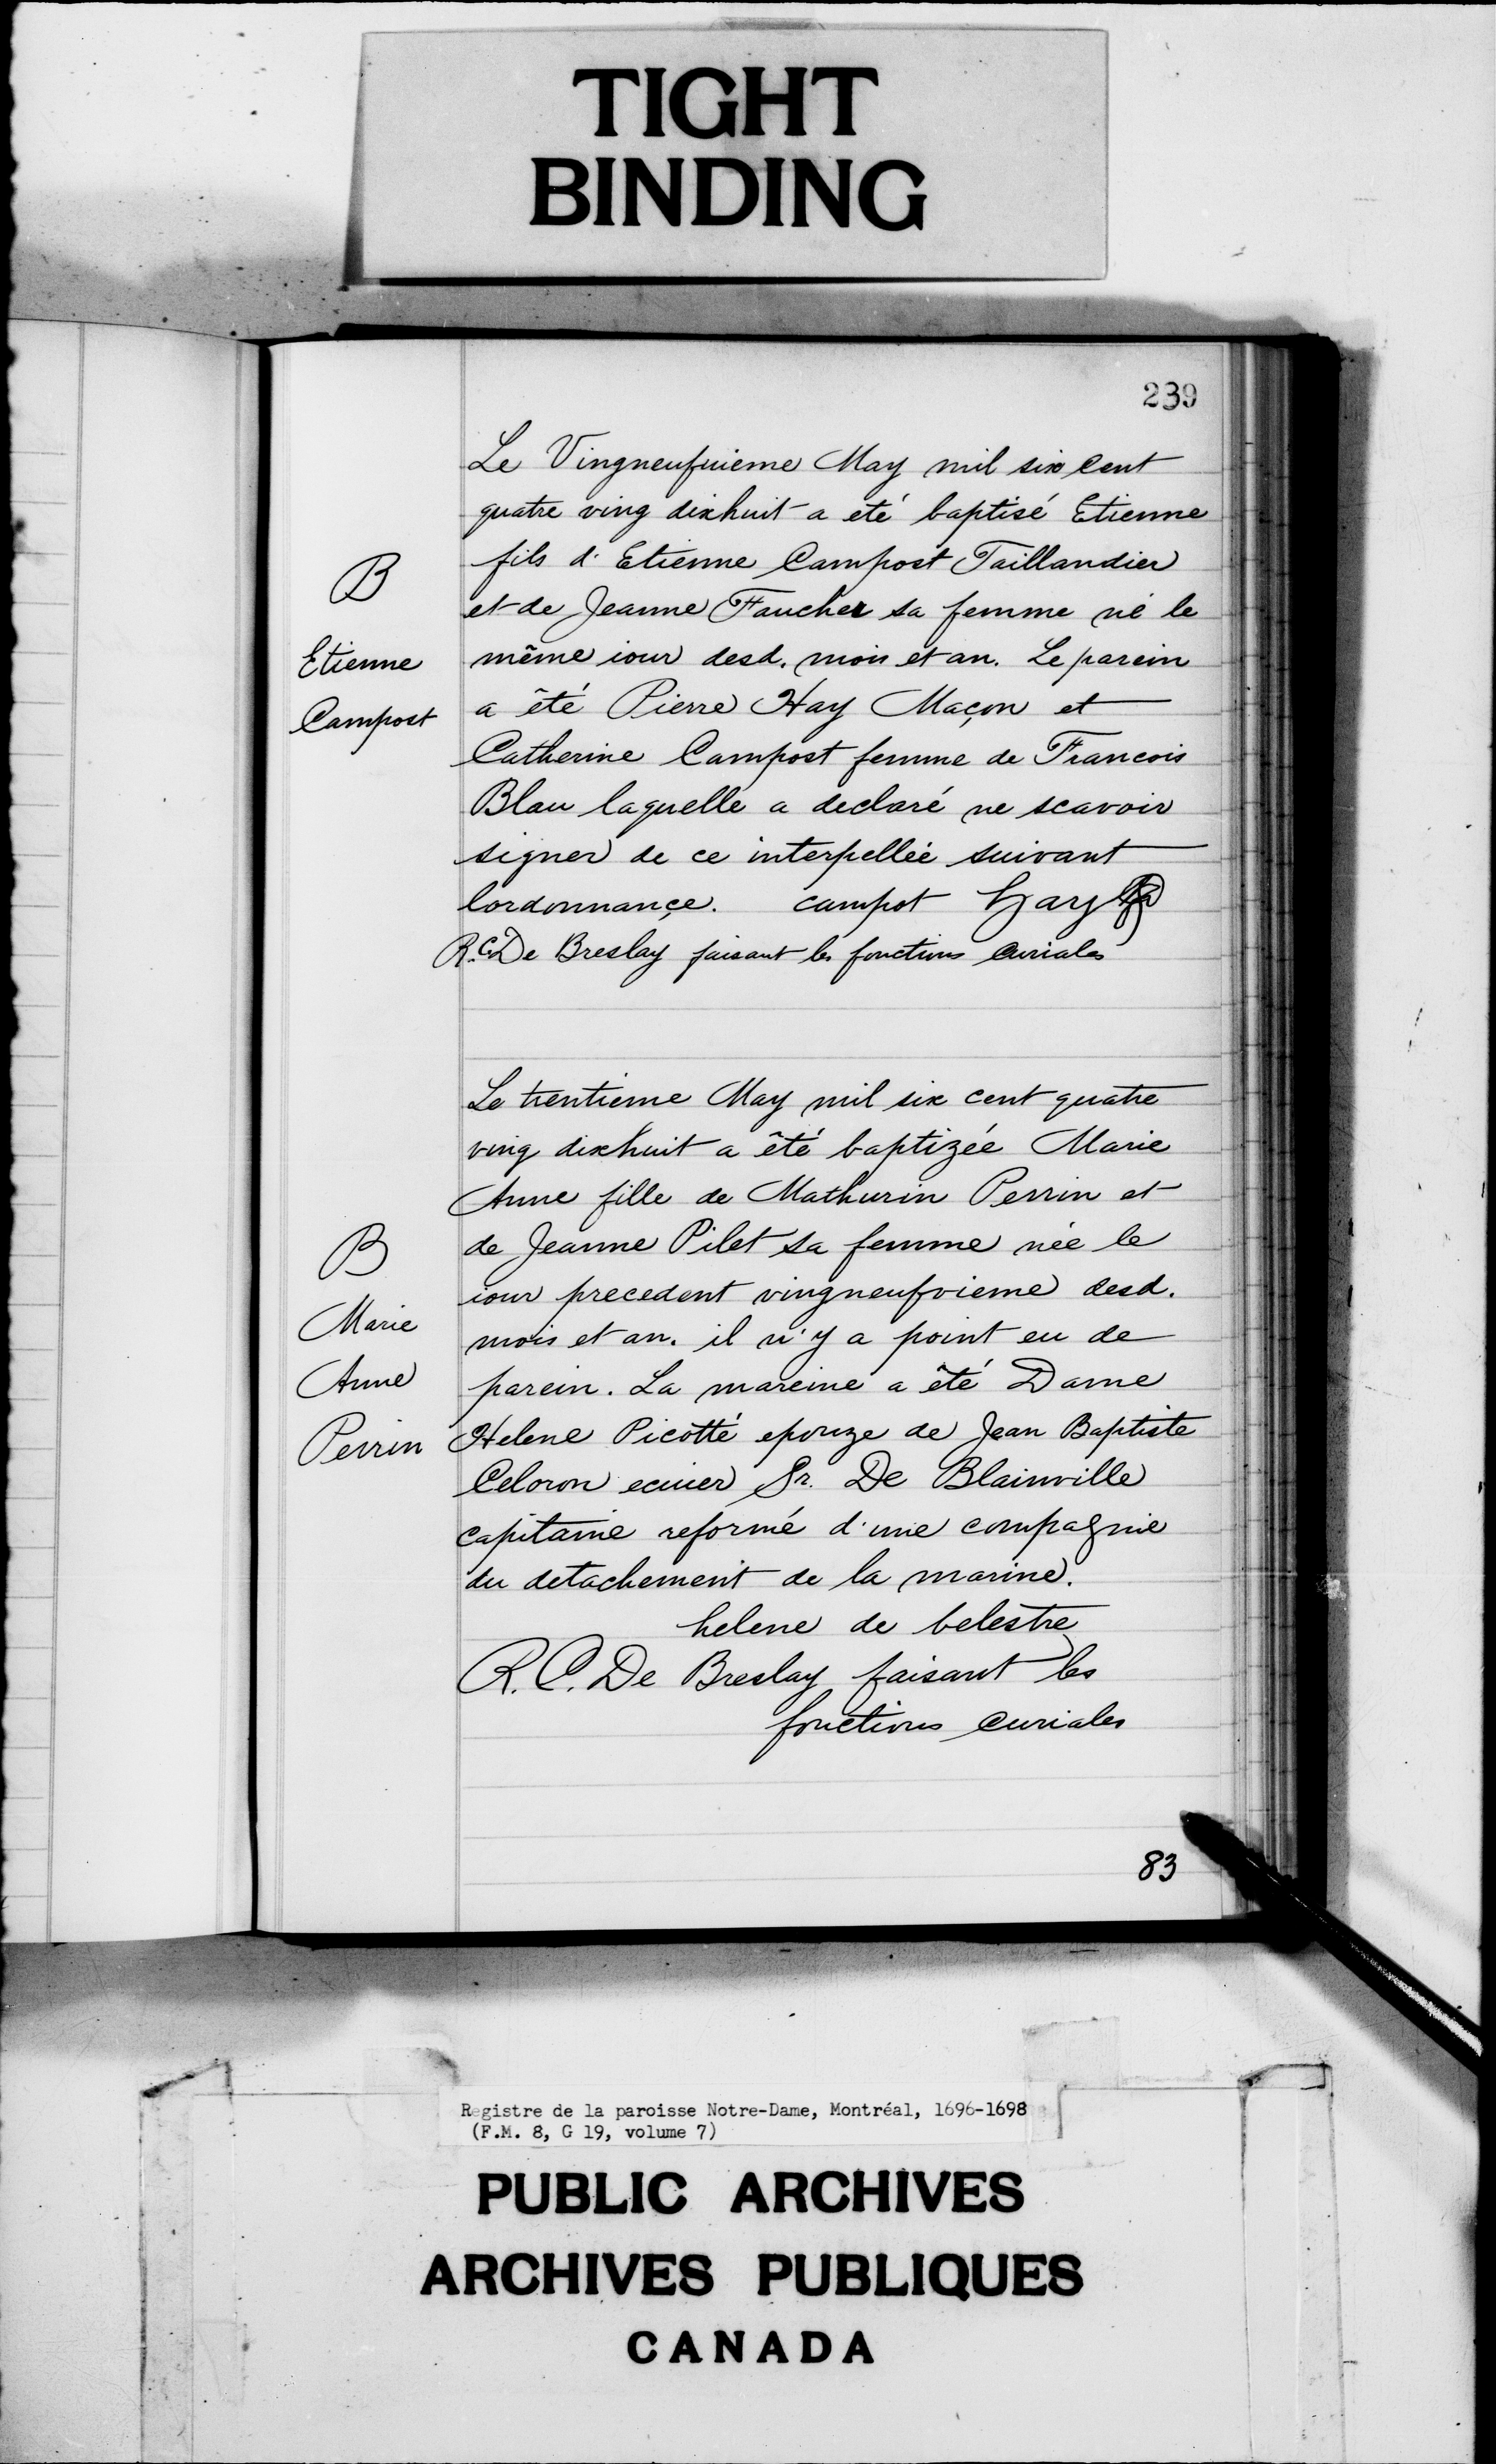 TIGHT
BINDING
239
Le Vingneufuieme May mil six cent
quatre ving dixhuit a eté baptisé Etienne
fils d'Etienne Campost Taillandier
et de Jeanne Faucher sa femme né le
même iour desd. mois et an. Le parein
a êté Pierre Hay Maçon et
Catherine Campost femme de Francois
Blau laquelle a declaré ne scavoir
signer de ce interpellée suivant
lordonnançe. campot hay
R.C. De Breslay faisant les fonctions curiales
B
Etienne
Campost
Le trentieme May mil six cent quatre
ving dixhuit a êté baptizée Marie
Anne fille de Mathurin Perrin et
de Jeanne Pilet sa femme née le
iour precedent vingneufvieme desd.
mois et an. il n'y a point eu de
parein. La mareine a êté Dame
Helene Picotté epouze de Jean Baptiste
Celoron ecuier Sr. De Blainville
capitaine reformé d'une compagnie
du detachement de la marine.
helene de belestre
R. C. De Breslay faisant les
fonctions curiales
B
Marie
Anne
Perrin
83
Registre de la paroisse Notre-Dame, Montréal, 1696-1698
(F.M. 8, G 19, volume 7)
PUBLIC ARCHIVES
ARCHIVES PUBLIQUES
CANADA